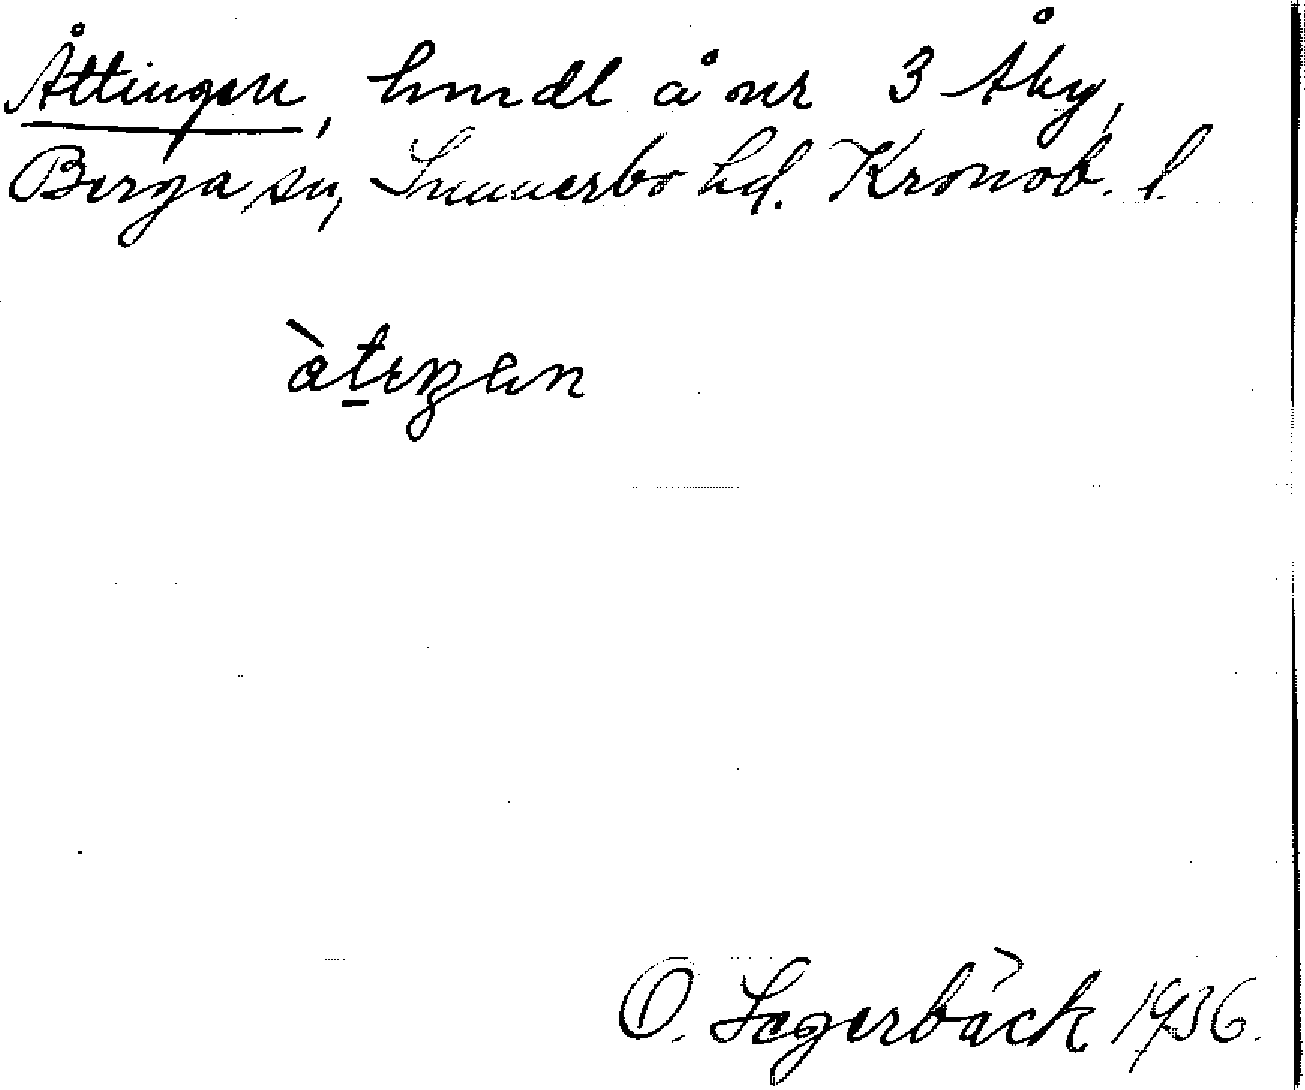 Åttingen, hmdl å nr 3 Åby,
Berga sn, Sunnerbo hd. Kronob. l.
O. Segerbäck 1936.